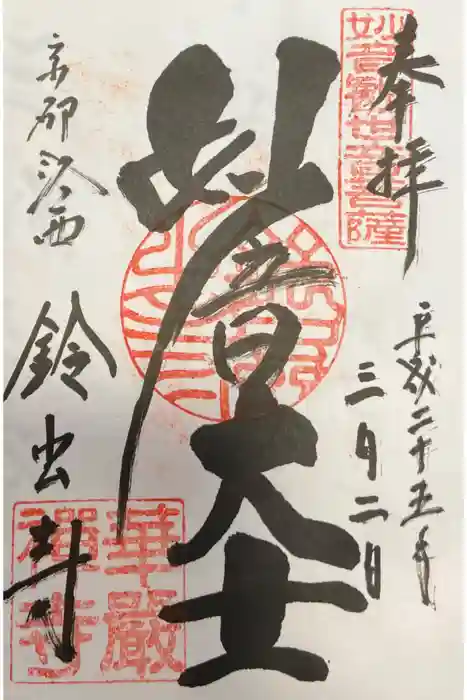 奉拝
妙音観世音菩薩
平成二十五年
三月二日
妙音大士
華嚴
禪寺
京都洛西
鈴虫寺